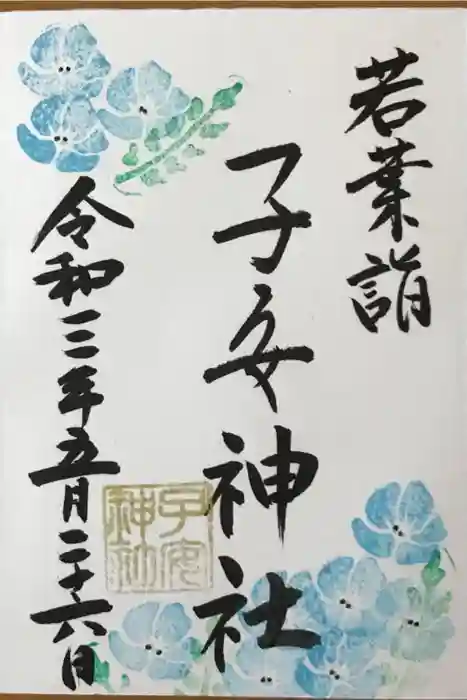 若葉詣
子安神社
令和三年五月二十六日
子安
神社